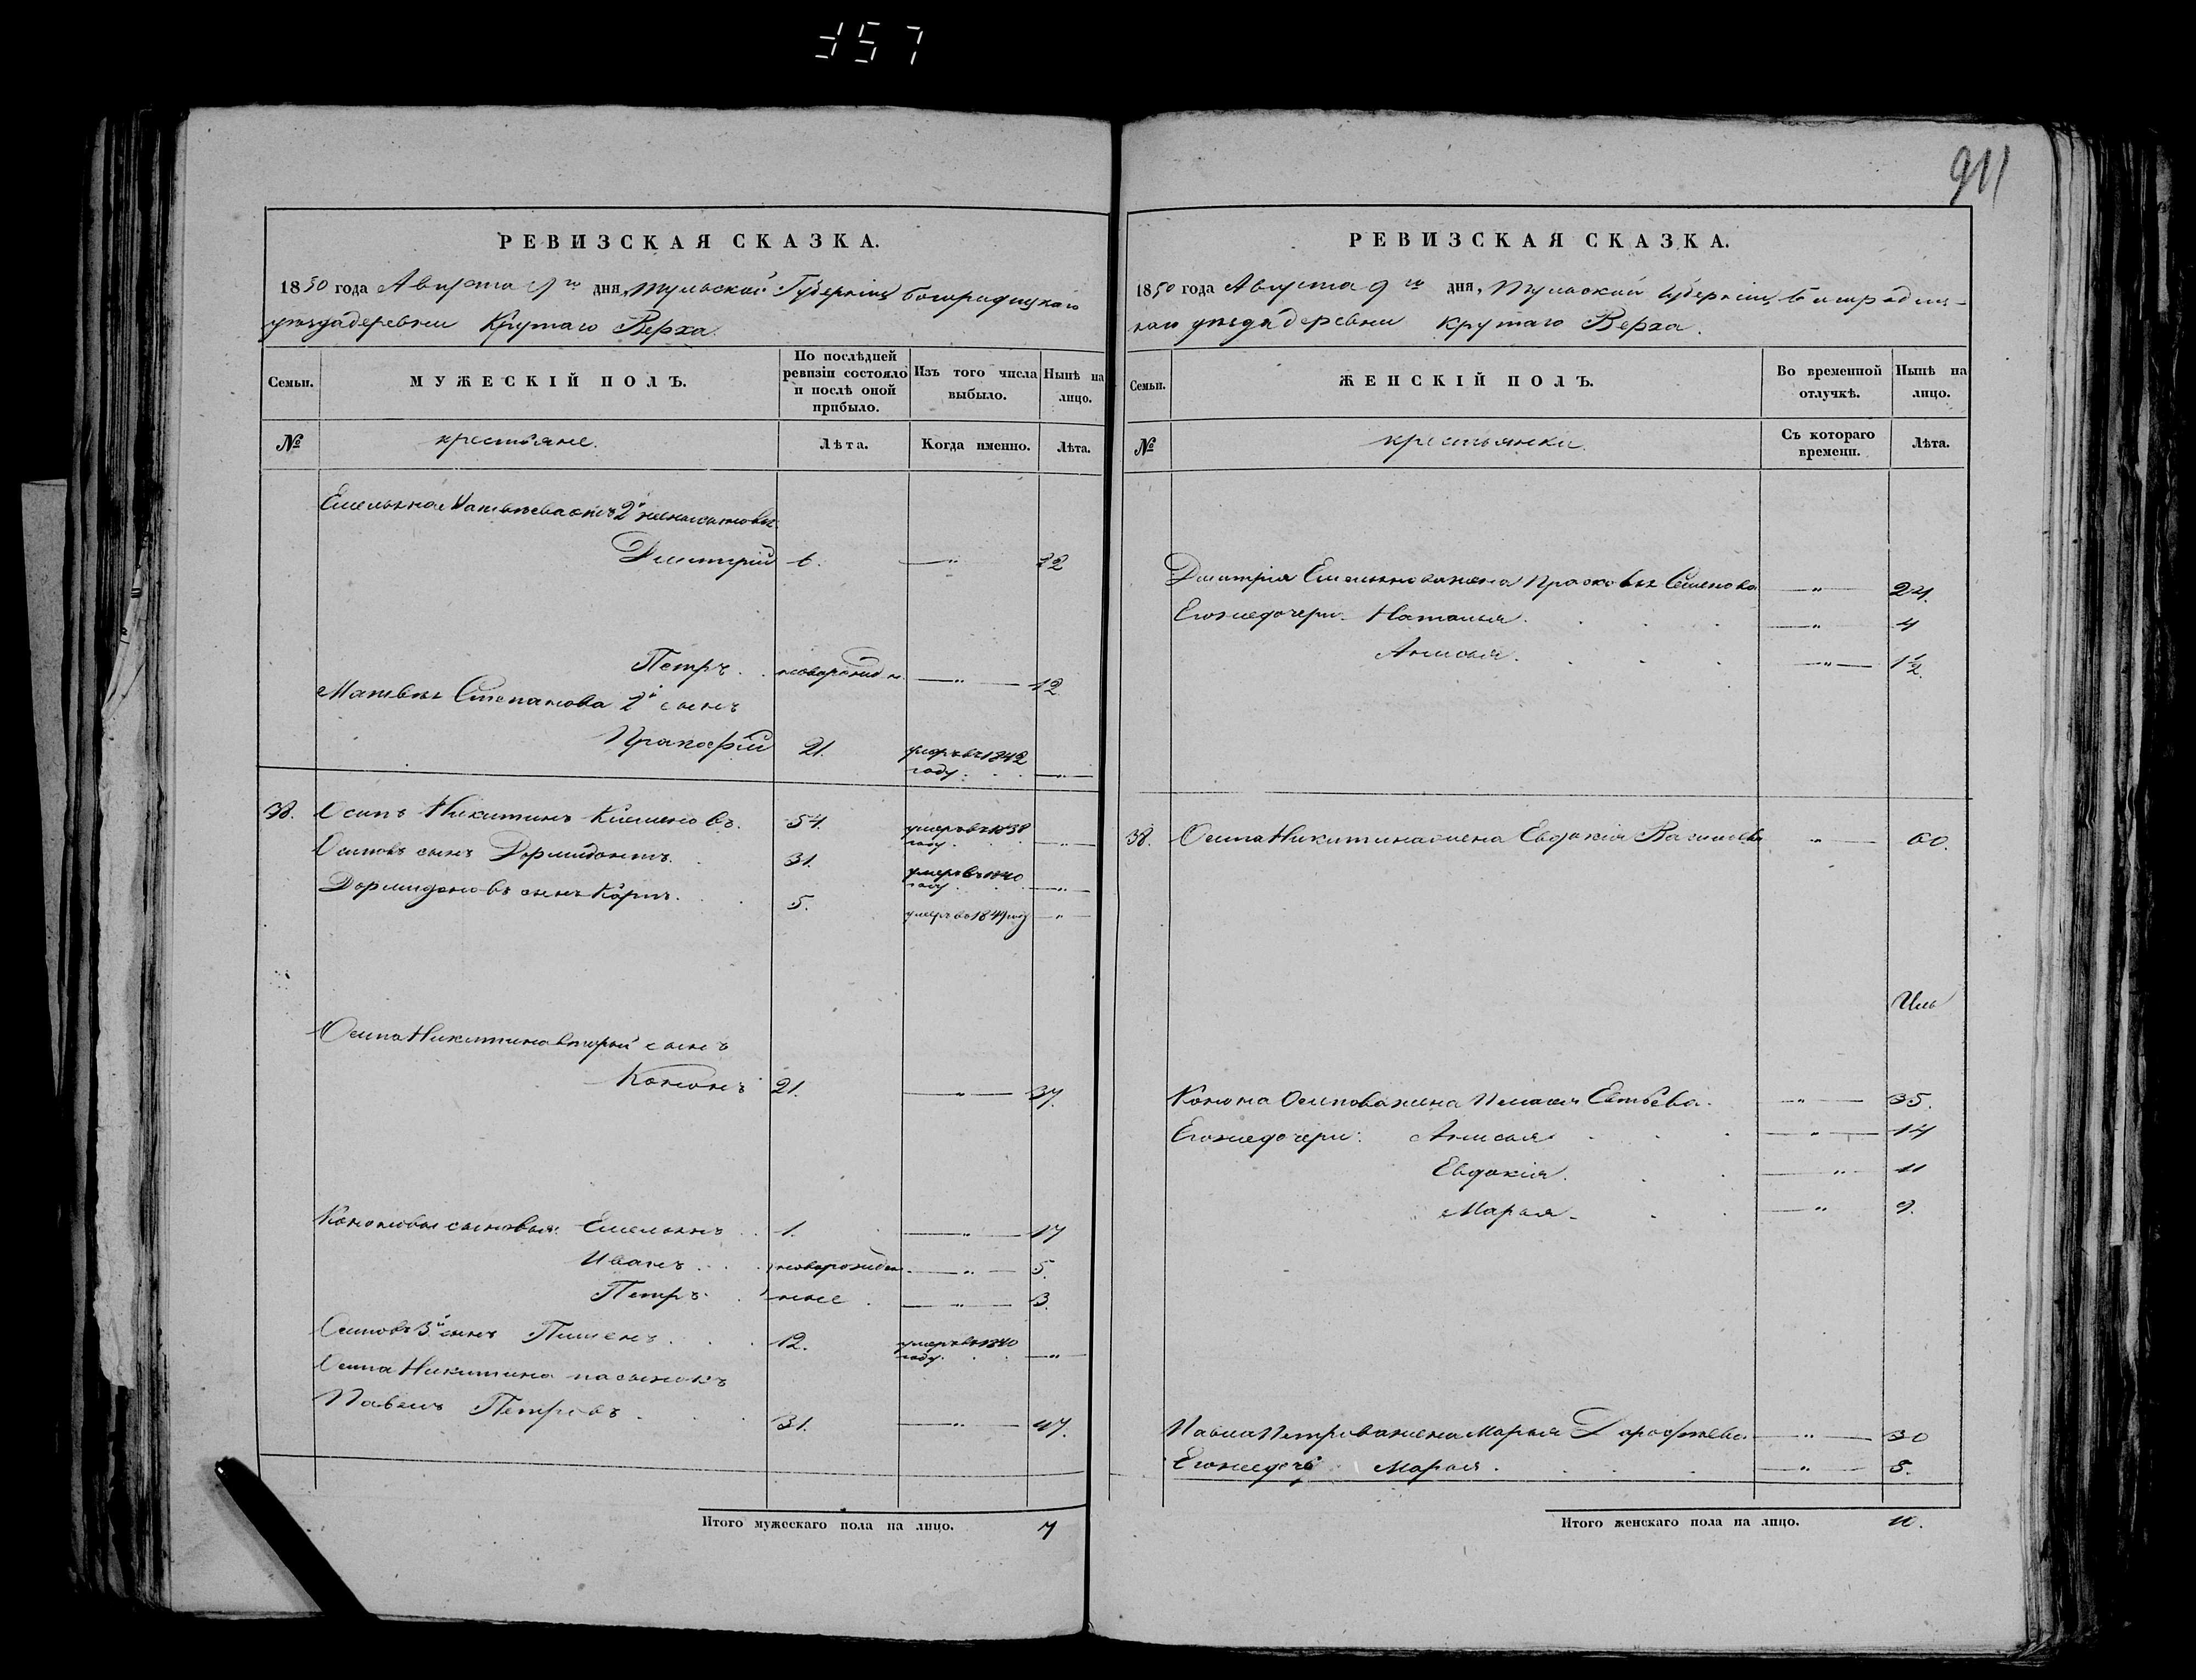 357
911
РЕВИЗСКАЯ СКАЗКА.
1850 года Августа 9го дня, Тульской Губерніи Богородицкаго
уѣзда деревни Крутаго Верха.
Семьи.
МУЖЕСКІЙ ПОЛЪ.
По послѣдней ревизіи состояло и послѣ оной прибыло.
Изъ того числа выбыло.
Нынѣ на лицо.
№
крестьяне.
Лѣта.
Когда именно.
Лѣта.
Емельяна Матвѣева отъ 2й жены сыновья
Дмитрій 6. — " — 22
Петръ . . новорожден. — " — 12
Матвѣя Степанова 2й сынъ
Прокофій 21. умеръ въ 1842 году . . — " —
38. Осипъ Никитинъ 54. умеръ въ 1838 году . — " —
Осиповъ сынъ Дормидонтъ. . 31. умеръ въ 1840 году . . — " —
Дормидоновъ сынъ Карпъ. . . 5. умеръ въ 1849 году — " —
Осипа Никитина вторый сынъ
Кононъ 21. — " — 37.
Кононовы сыновья: Емельянъ . . 1. — " — 17
Иванъ . . . новорожден — " — 5.
Петръ. . ные . — " — 3.
Осиповъ 3й сынъ Пименъ . . . 12. умеръ въ 1840 году. . . — " —
Осипа Никитина пасынокъ
Павелъ Петровъ . . 31. — " — 47.
Итого мужескаго пола на лицо. 7
РЕВИЗСКАЯ СКАЗКА.
1850 года Августа 9го дня, Тульской Губерніи, Богородиц-
каго уѣзда деревни Крутаго Верха.
Семьи.
ЖЕНСКІЙ ПОЛЪ.
Во временной отлучкѣ.
Нынѣ на лицо.
№
крестьянки.
Съ котораго времени.
Лѣта.
Дмитрія Емельянова жена Прасковья Семенова — " — 24.
Его же дочери Наталья . . . — " — 4
Анисья . . . — " — 1½
38. Осипа Никитина жена Евдокія Васильева " — 60.
Конона Осипова жена Пелагея — " — 35.
Его же дочери: Анисья . . . — " — 14
Евдокія . . . — " — 11
Марья . . — " — 9.
Павла Петрова жена Марья Дорофѣева — " — 30
Его же дочь Марья . . . . — " — 8.
Итого женскаго пола на лицо. 10.